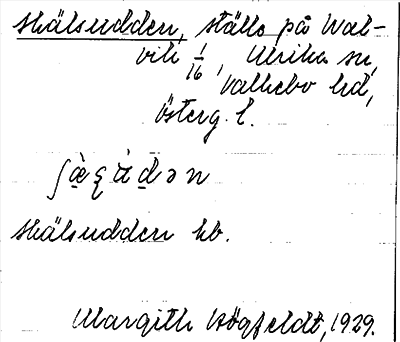 Skälsudden, ställe på Wal-
vik 1/16, Ulrika sn,
Valkebo hd,
Österg. l.
ʃæ̀ʂùdən
Skälsudden kb.
Margith Högfeldt, 1929.